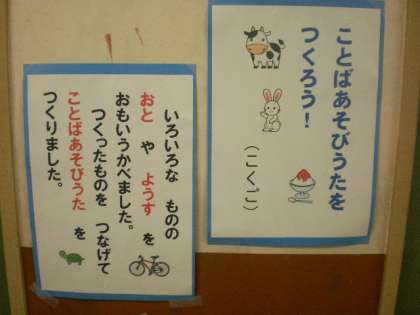 ことばあそびうたを
つくろう！
（こくご）
いろいろな ものの
おと や ようす を
おもいうかべました。
つくったものを つなげて
ことばあそびうた を
つくりました。